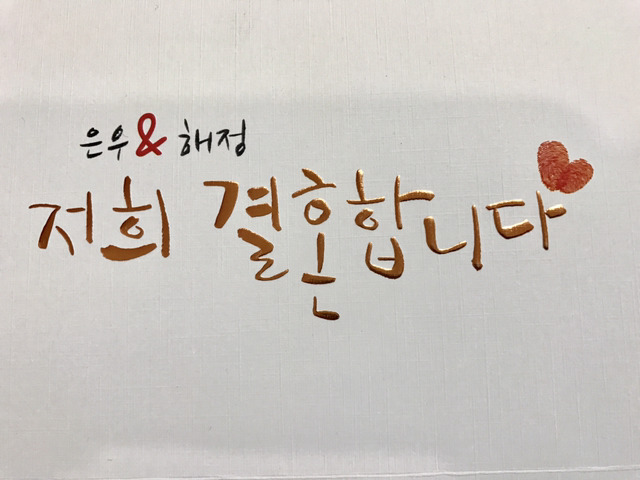 은우 & 해정
저희 결혼합니다